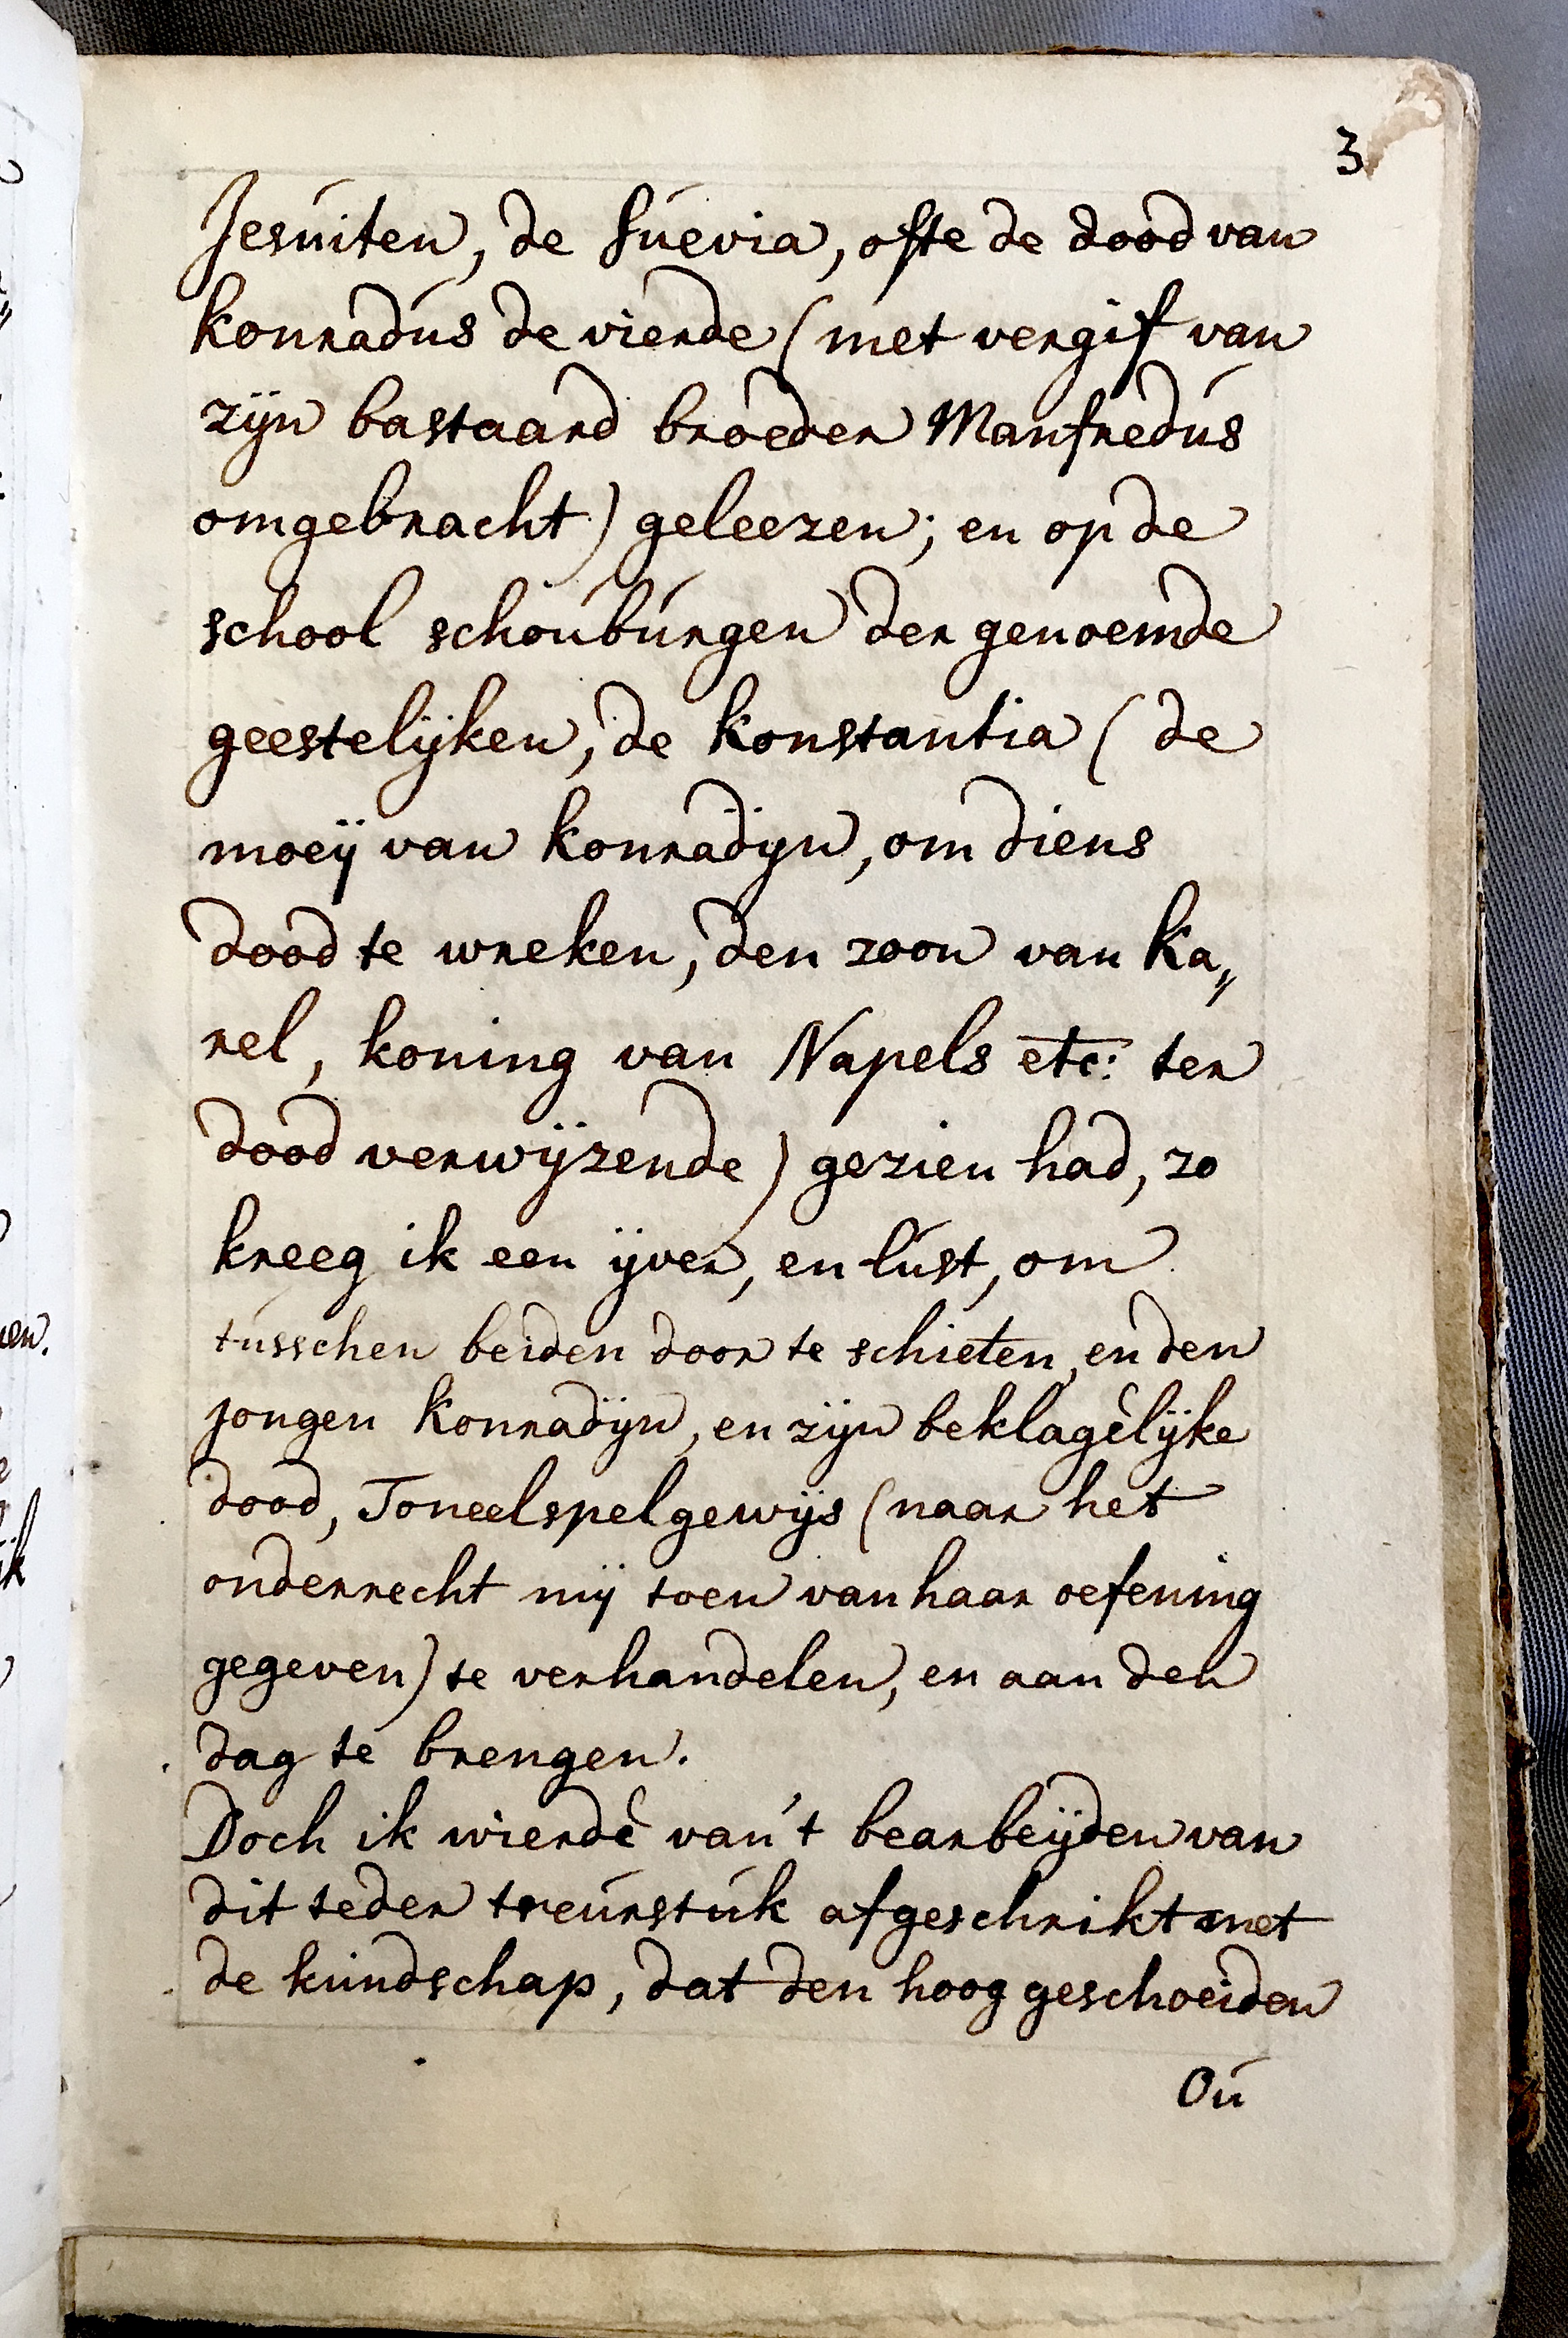 3
Jesuiten, de Suevia, ofte de dood van
konradus de vierde (met vergif van
zijn bastaard broeder Manfredus
omgebracht) geleezen; en op de
school schouburgen der genoemde
geestelijken, de konstantia (de
moeij van konradijn, om diens
dood te wreken, den zoon van Ka„
rel, koning van Napels etc: ter
dood verwijzende) gezien had, zo
kreeg ik een ijver, en lust, om
tusschen beiden door te schieten, en den
jongen Konradijn, en zijn beklagèlijke
dood, Toneelspelgewijs (naar het
onderrecht mij toen van haar oefening
gegeven) te verhandelen, en aan den
dag te brengen.
Doch ik wierdè van't bearbeijden van
dit teder treurstuk afgeschrikt met
de kundschap, dat den hoog geschoeiden
Ou